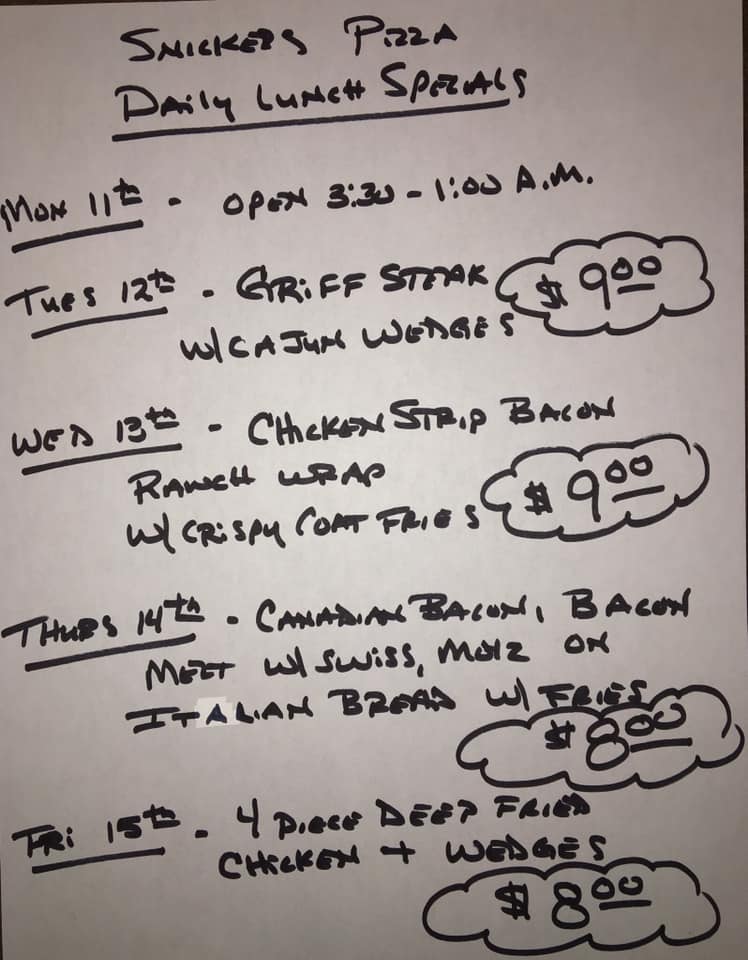 SNICKERS PIZZA
DAILY LUNCH SPECIALS
MON 11th - OPEN 3:30 - 1:00 A.M.
TUES 12th - GRIFF STEAK $ 9 00
W/ CAJUN WEDGES
WED 13th - CHICKEN STRIP BACON
RANCH WRAP
W/ CRISPY COAT FRIES $ 9 00
THURS 14th - CANADIAN BACON, BACON
MEET W/ SWISS, MOZZ ON
ITALIAN BREAD W/ FRIES
$ 8 00
FRI 15th - 4 PIECE DEEP FRIED
CHICKEN + WEDGES
$ 8 00